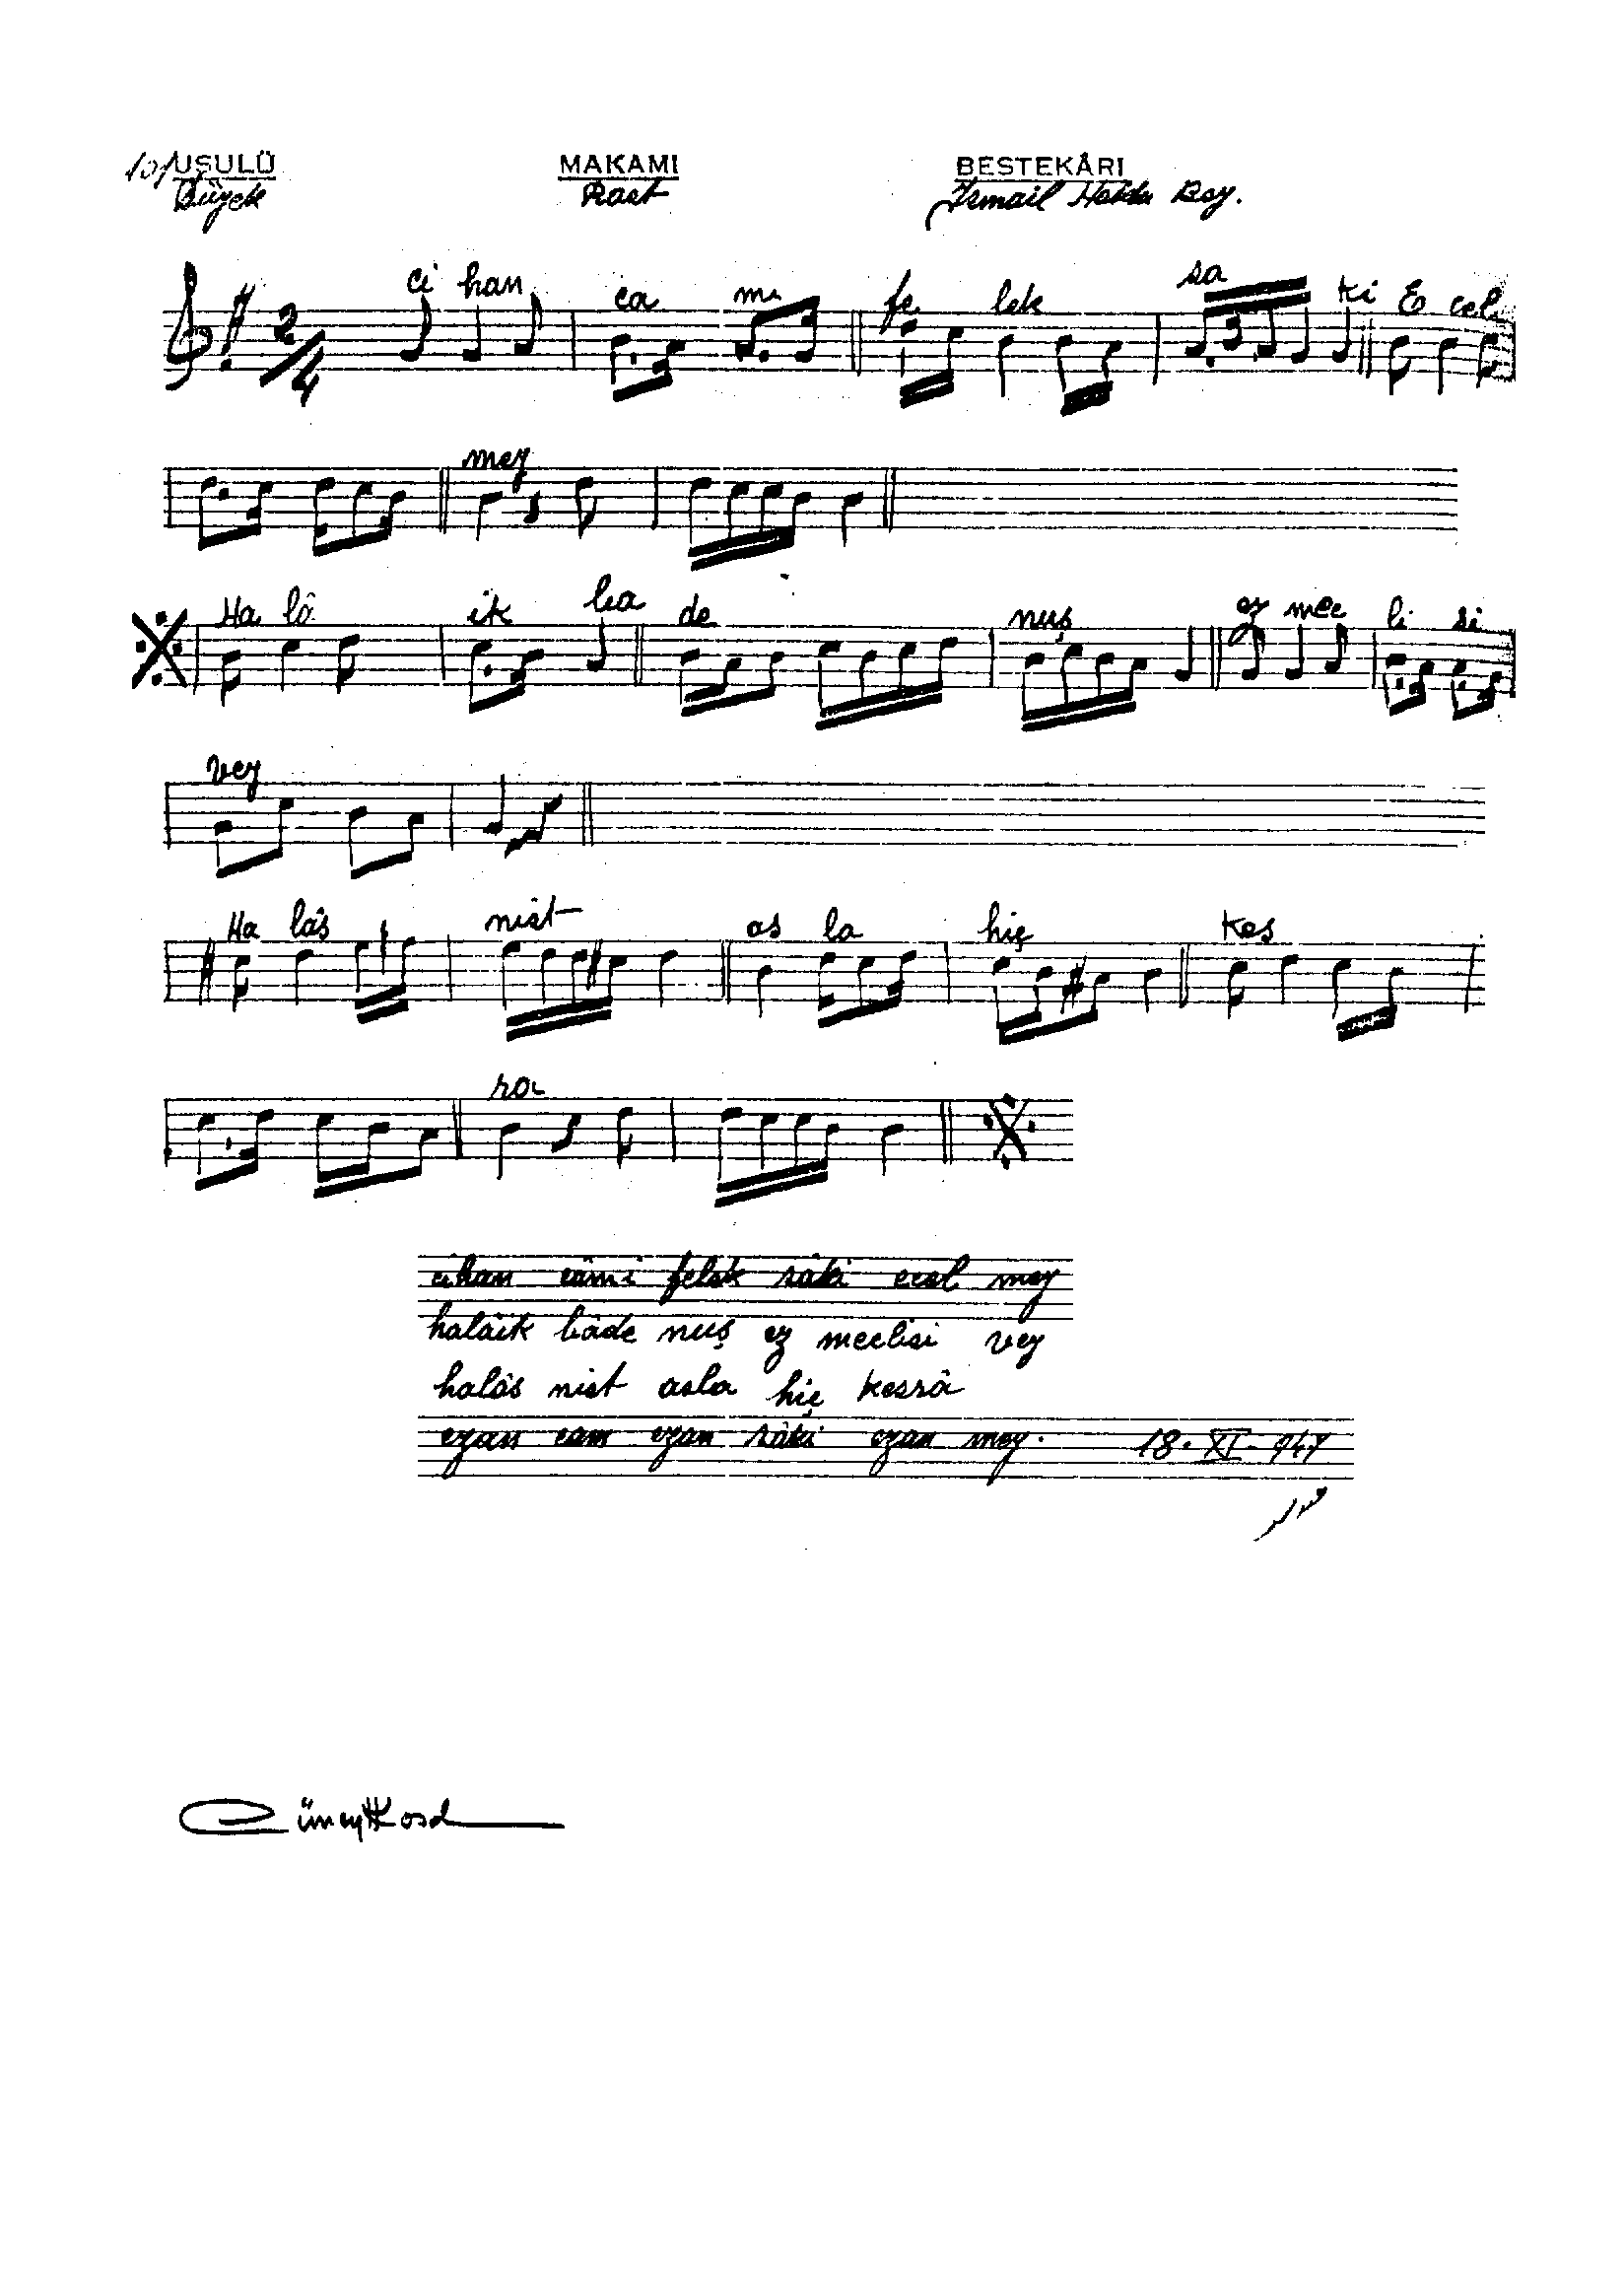 101 USULÜ MAKAMI BESTEKÂRI
Düyek Rast İsmail Hakkı Bey.
ci han ca mı fe lek sa ki E cel
2/4
mey
Ha lâ ik ba de nuş ez mec li si
vey
Ha lâs nist as la hiç kes
ra
cihan câmi felek sâki ecel mey
halâik bâde nuş ez meclisi vey
halâs nist asla hiç kesrâ
ezan cam ezan sâki ezan mey. 18. XI. 947
Cüneyt Kosal